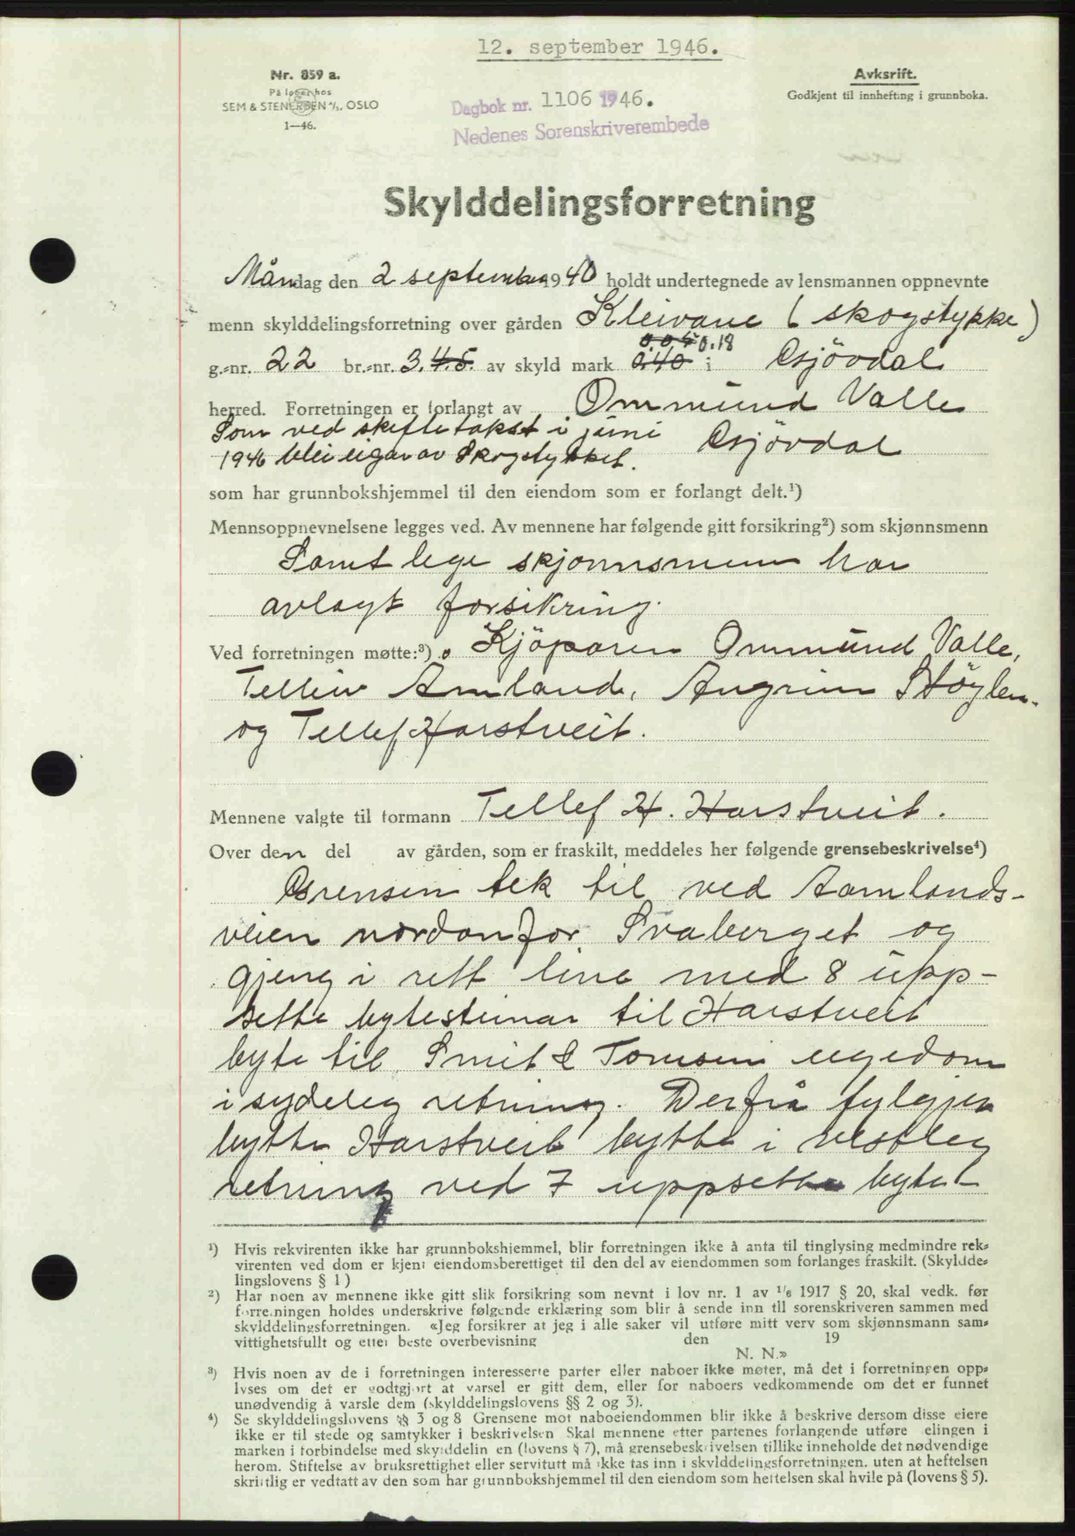 12. september 1946.
Nr. 859 a.
På lager hos
SEM & STENERSEN A/S, OSLO
1—46.
Avksrift.
Godkjent til innhefting i grunnboka.
Dagbok nr. 1106 1946.
Nedenes Sorenskriverembede
Skylddelingsforretning
Måndag den 2 september 1946 holdt undertegnede av lensmannen oppnevnte
menn skylddelingsforretning over gården Kleivane (skogstykke)
0.04 0.18
g.-nr. 22 br.-nr. 3. 4.5. av skyld mark 0.40 i Gjövdal
herred. Forretningen er forlangt av Ommund Valle
Som ved skiftetakst i juni Gjövdal
1946 blei eigar av Skogstykket.
som har grunnbokshjemmel til den eiendom som er forlangt delt.¹)
Mennsoppnevnelsene legges ved. Av mennene har følgende gitt forsikring²) som skjønnsmenn
Samtlege skjønnsmenn har
avlagt forsikring.
Ved forretningen møtte:³) Kjöparen Ommund Valle,
Tellev Aamland, Angrim Stöylen
og Tellef Harstveit.
Mennene valgte til formann Tellef H. Harstveit.
Over den del av gården, som er fraskilt, meddeles her følgende grensebeskrivelse⁴)
Grensen tek til ved Aamlands-
veien nordanfor Svaberget og
gjeng i rett line med 8 upp-
sette bytesteinar til Harstveit
byte til Smit & Tomsen eigedom
i sydeleg retning. Derfrå fylgjer
bytte Harstveit bytte i vestleg
retning ved 7 uppsette byte-
¹) Hvis rekvirenten ikke har grunnbokshjemmel, blir forretningen ikke å anta til tinglysing medmindre rek-
virenten ved dom er kjent eiendomsberettiget til den del av eiendommen som forlanges fraskilt. (Skyldde-
lingslovens § 1)
²) Har noen av mennene ikke gitt slik forsikring som nevnt i lov nr. 1 av 1/6 1917 § 20, skal vedk. før
forretningen holdes underskrive følgende erklæring som blir å sende inn til sorenskriveren sammen med
skylddelingsforretningen. «Jeg forsikrer at jeg i alle saker vil utføre mitt verv som skjønnsmann sam-
vittighetsfullt og etter beste overbevisning den 19
N. N.»
³) Hvis noen av de i forretningen interesserte parter eller naboer ikke møter, må det i forretningen opp-
lyses om det er godtgjort at varsel er gitt dem, eller for naboers vedkommende om det er funnet
unødvendig å varsle dem (skylddelingslovens §§ 2 og 3).
⁴) Se skylddelingslovens §§ 3 og 8 Grensene mot naboeiendommen blir ikke å beskrive dersom disse eiere
ikke er til stede og samtykker i beskrivelsen Skal mennene etter partenes forlangende utføre delingen i
marken i forbindelse med skylddelingen (lovens § 7), må grensebeskrivelsen tillike inneholde det nødvendige
herom. Stiftelse av bruksrettighet eller servitutt må ikke tas inn i skylddelingsforretningen, uten at heftelsen
skriftlig er vedtatt av den som har grunnbokshjemmel til den eiendom som heftelsen skal hvile på (lovens § 5).